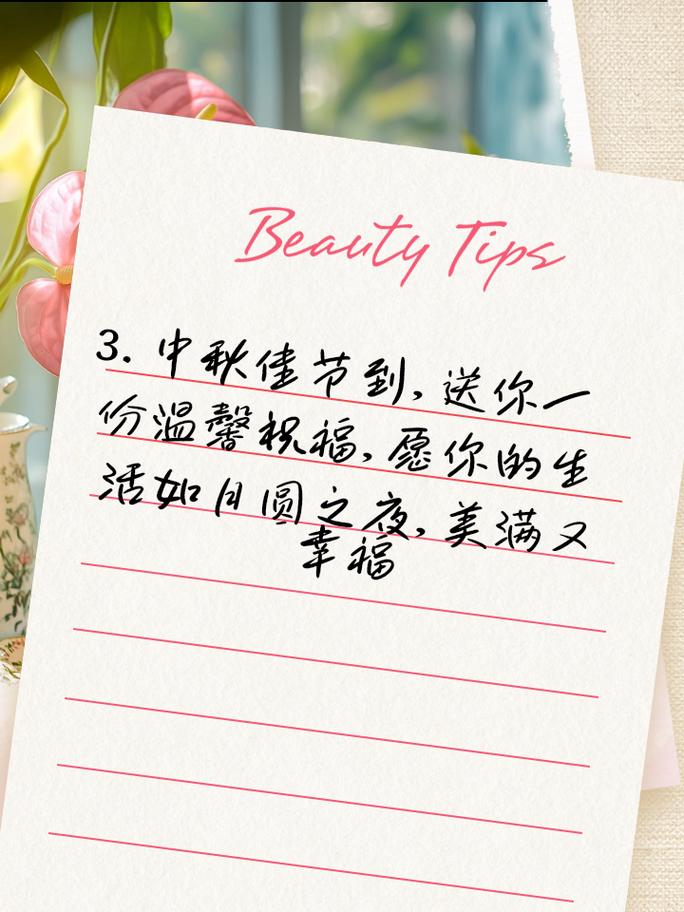 Beauty Tips
3. 中秋佳节到，送你一
份温馨祝福，愿你的生
活如月圆之夜，美满又
幸福